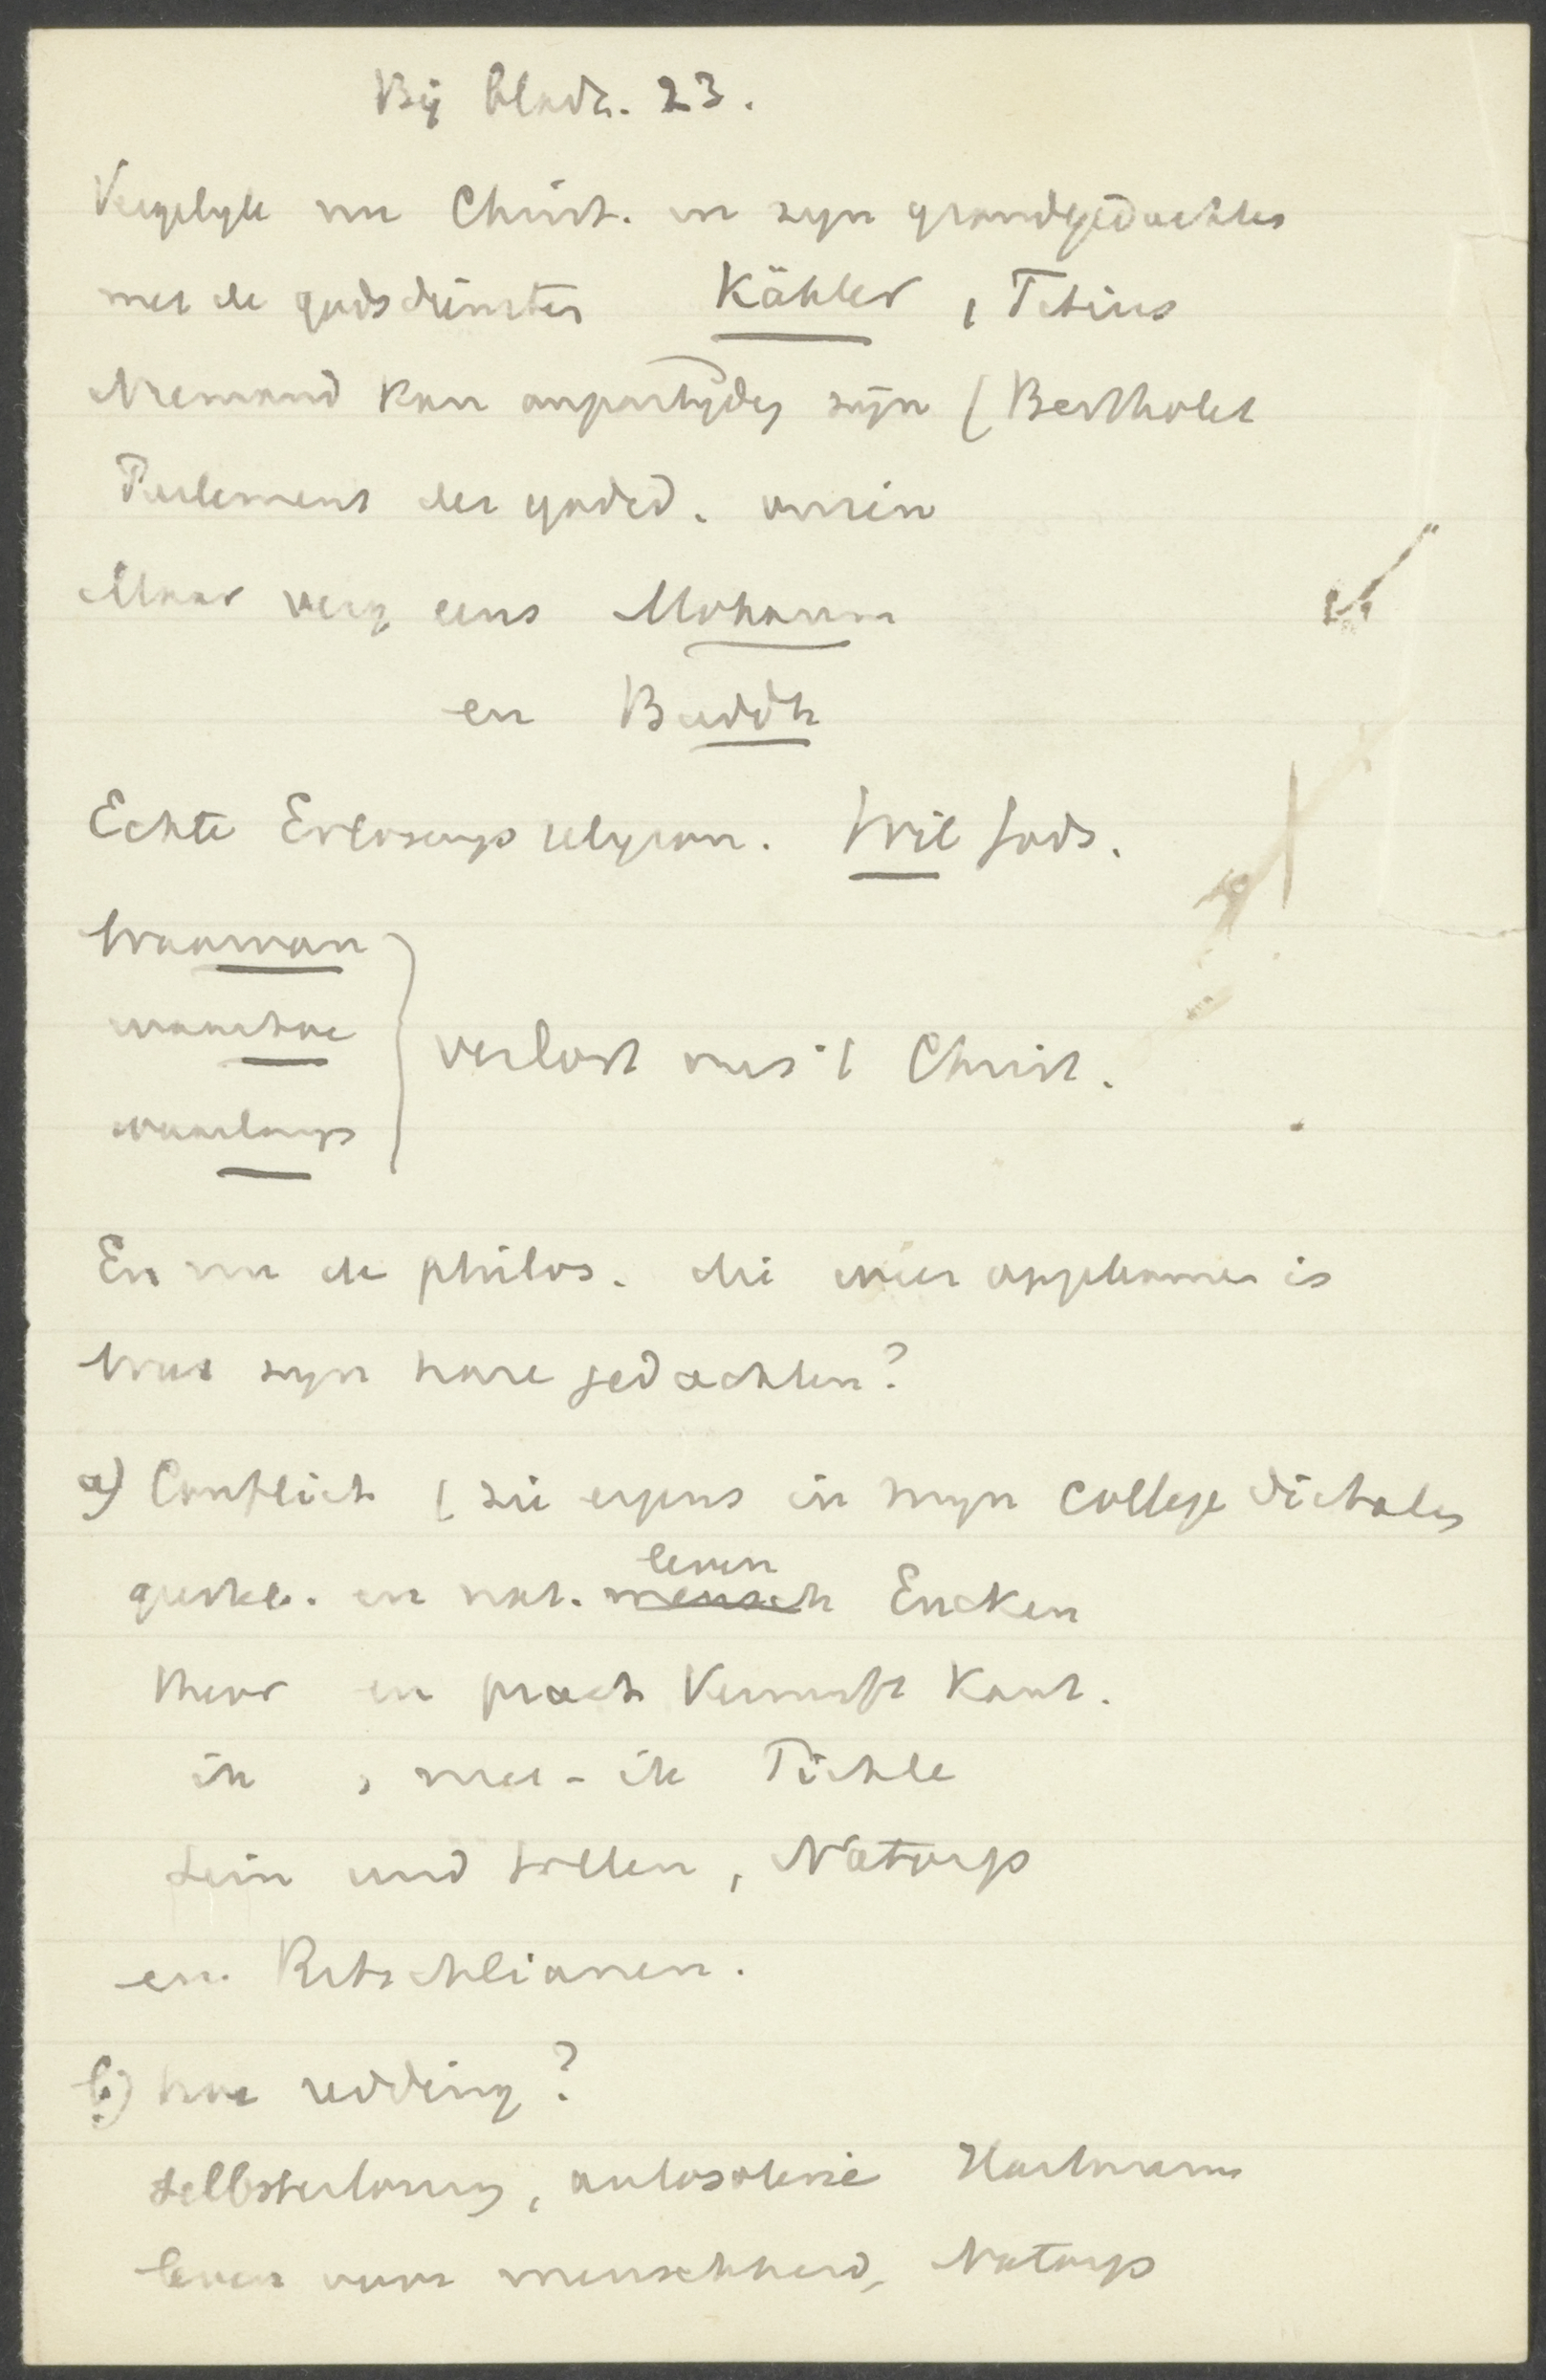 Bij bladz. 23.
Vergelijk nu Christ. in zijn grondgedachtes
met de godsdiensten Kähler, Titius
Niemand kan onpartijdig zijn (Bertholet
Parlement der godsd. onzin
Maar verg eens Moham
en Buddh
Echte Erlosungsreligion. Wil Gods.
Waarvan
waartoe
waarlangs
verlost ons 't Christ.
En nu de philos. die weer opgekomen is
Wat zijn hare gedachten?
a) Conflict (zie ergens in mijn college dictaten
geestel. en nat. mensch leven Eucken
theor en pract Vernunft Kant.
ik , niet-ik Fichte
Sein und Sollen, Natorp
en Ritschlianen.
b) hoe redding?
Selbsterlösung, autosoterie Hartmann
leven voor menschheid, Natorp